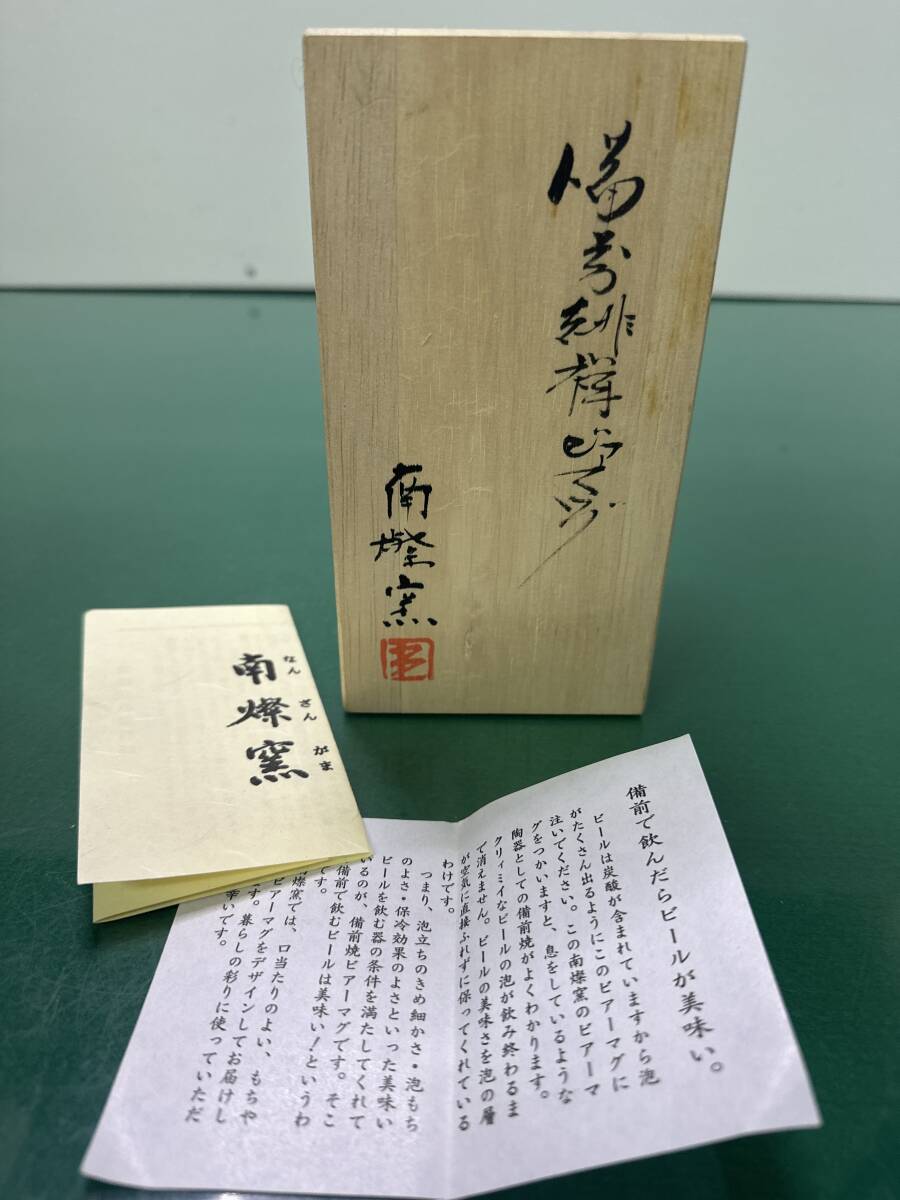 備前緋襷ビアーマグ
南燦窯
南燦窯
なん
さん
がま
備前で飲んだらビールが美味い。
ビールは炭酸が含まれていますから泡
がたくさん出るようにこのビアーマグに
注いでください。この南燦窯のビアーマ
グをつかいますと、息をしているような
陶器としての備前焼がよくわかります。
クリィミイなビールの泡が飲み終わるま
で消えません。ビールの美味さを泡の層
が空気に直接ふれずに保ってくれている
わけです。
つまり、泡立ちのきめ細かさ・泡もち
のよさ・保冷効果のよさといった美味い
ビールを飲む器の条件を満たしてくれて
いるのが、備前焼ビアーマグです。そこ
備前で飲むビールは美味い！というわ
です。
燦窯では、口当たりのよい、もちや
ビアーマグをデザインしてお届けし
す。暮らしの彩りに使っていただ
幸いです。